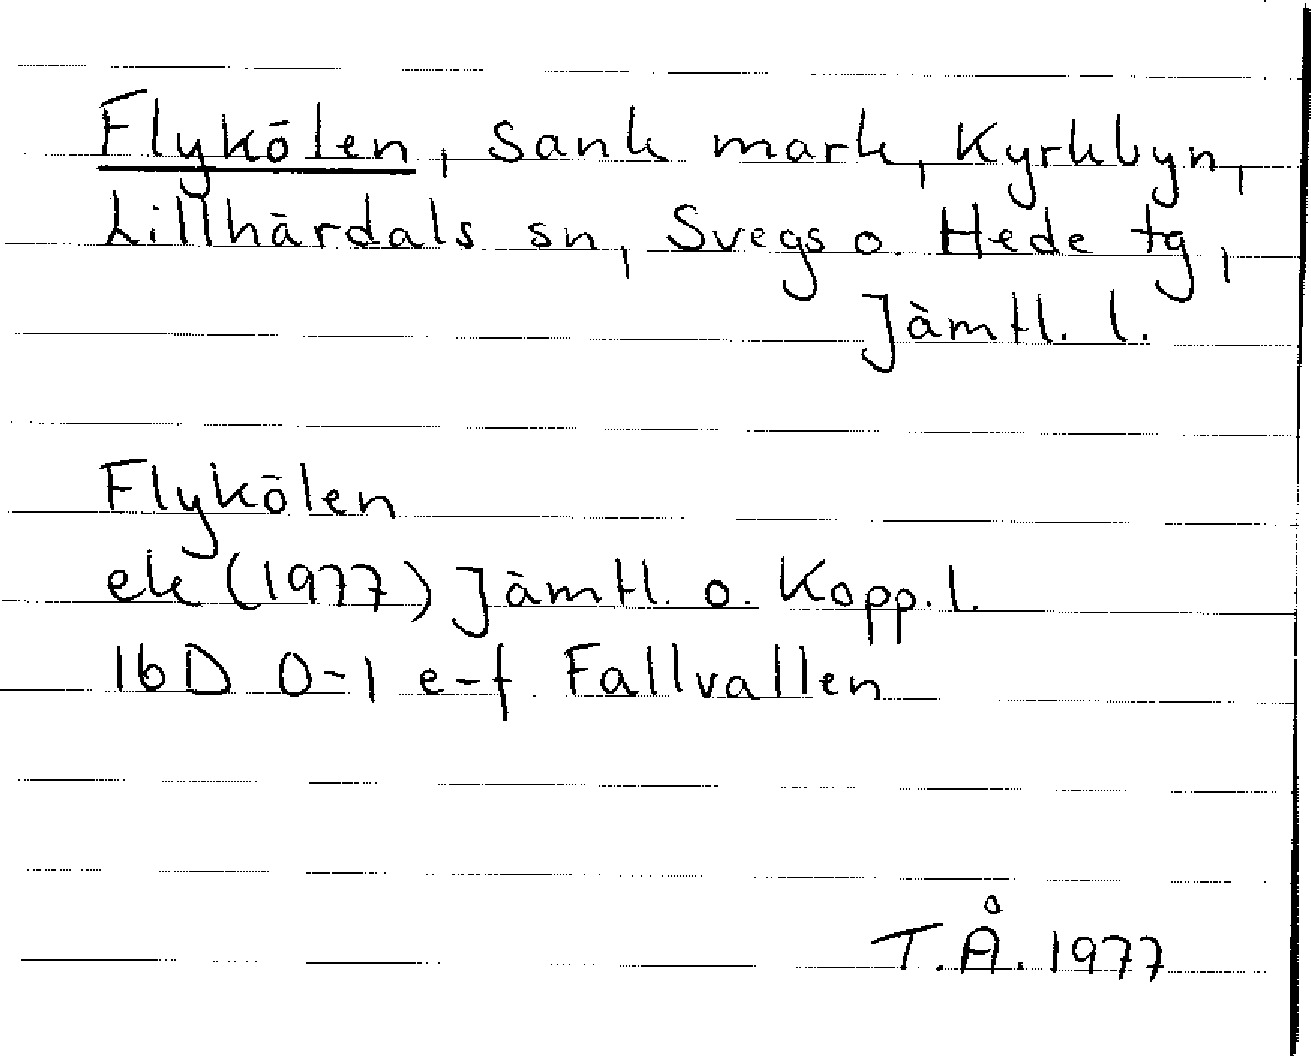 Flykölen, sank mark, Kyrkbyn,
Lillhärdals sn, Svegs o. Hede tg,
Jämtl. l.
Flykölen
ek (1977) Jämtl. o. Kopp. l.
16D 0-1 e-f Fallvallen
T.Å. 1977